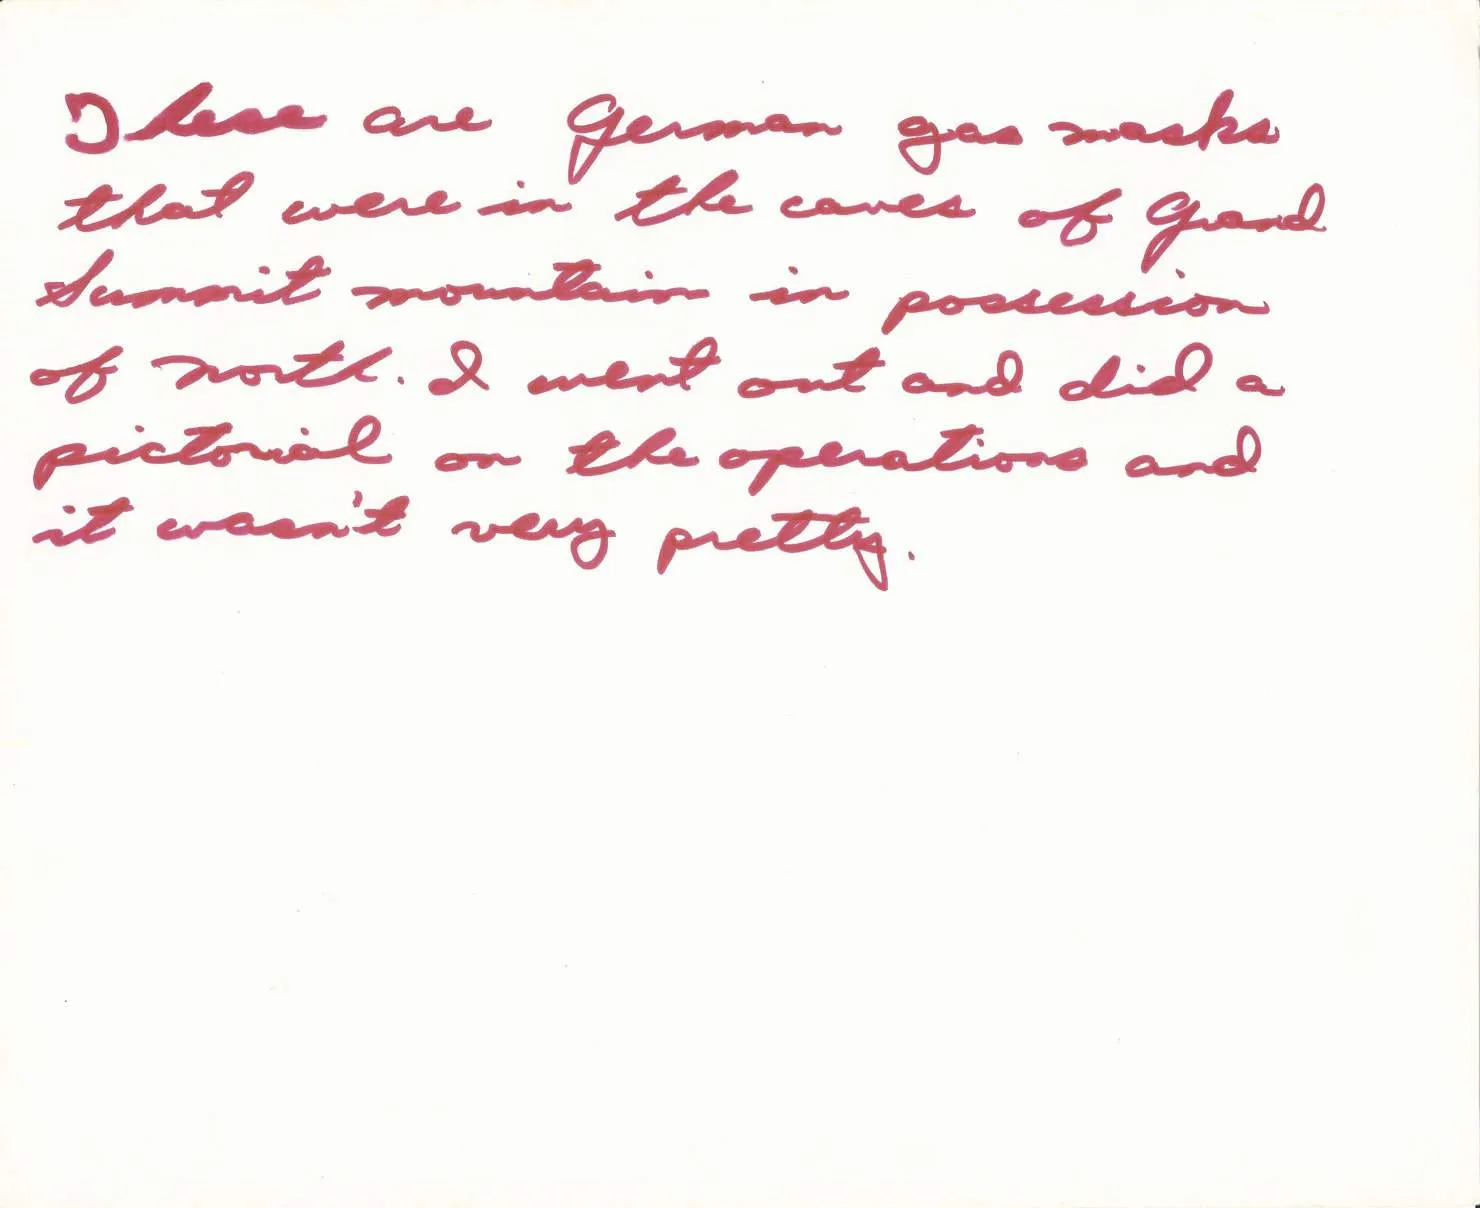 These are German gas masks
that were in the caves of Grand
Summit mountain in possession
of north. I went out and did a
pictorial on the operations and
it wasn't very pretty.